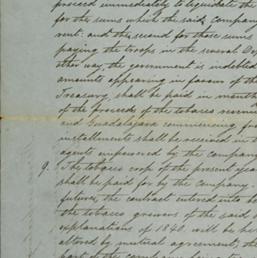 proceed immediately to liquidate the
for the sums which the said compan
rent. and the second for those sums
paying the troops in the several De
other way, the government is indebted
amounts appearing in favour of the
Treasury, shall be paid in month
of the proceeds of the tobacco reven
and Guadalajara commencing fr
installments shall be received in
agents empowered by the company
9. The tobacco crop of the present year
shall be paid for by the company
future, the contract entered into be
the tobacco growers of the said
explanations of 1840. will be he
altered by mutual agreement, the
part of the company being to